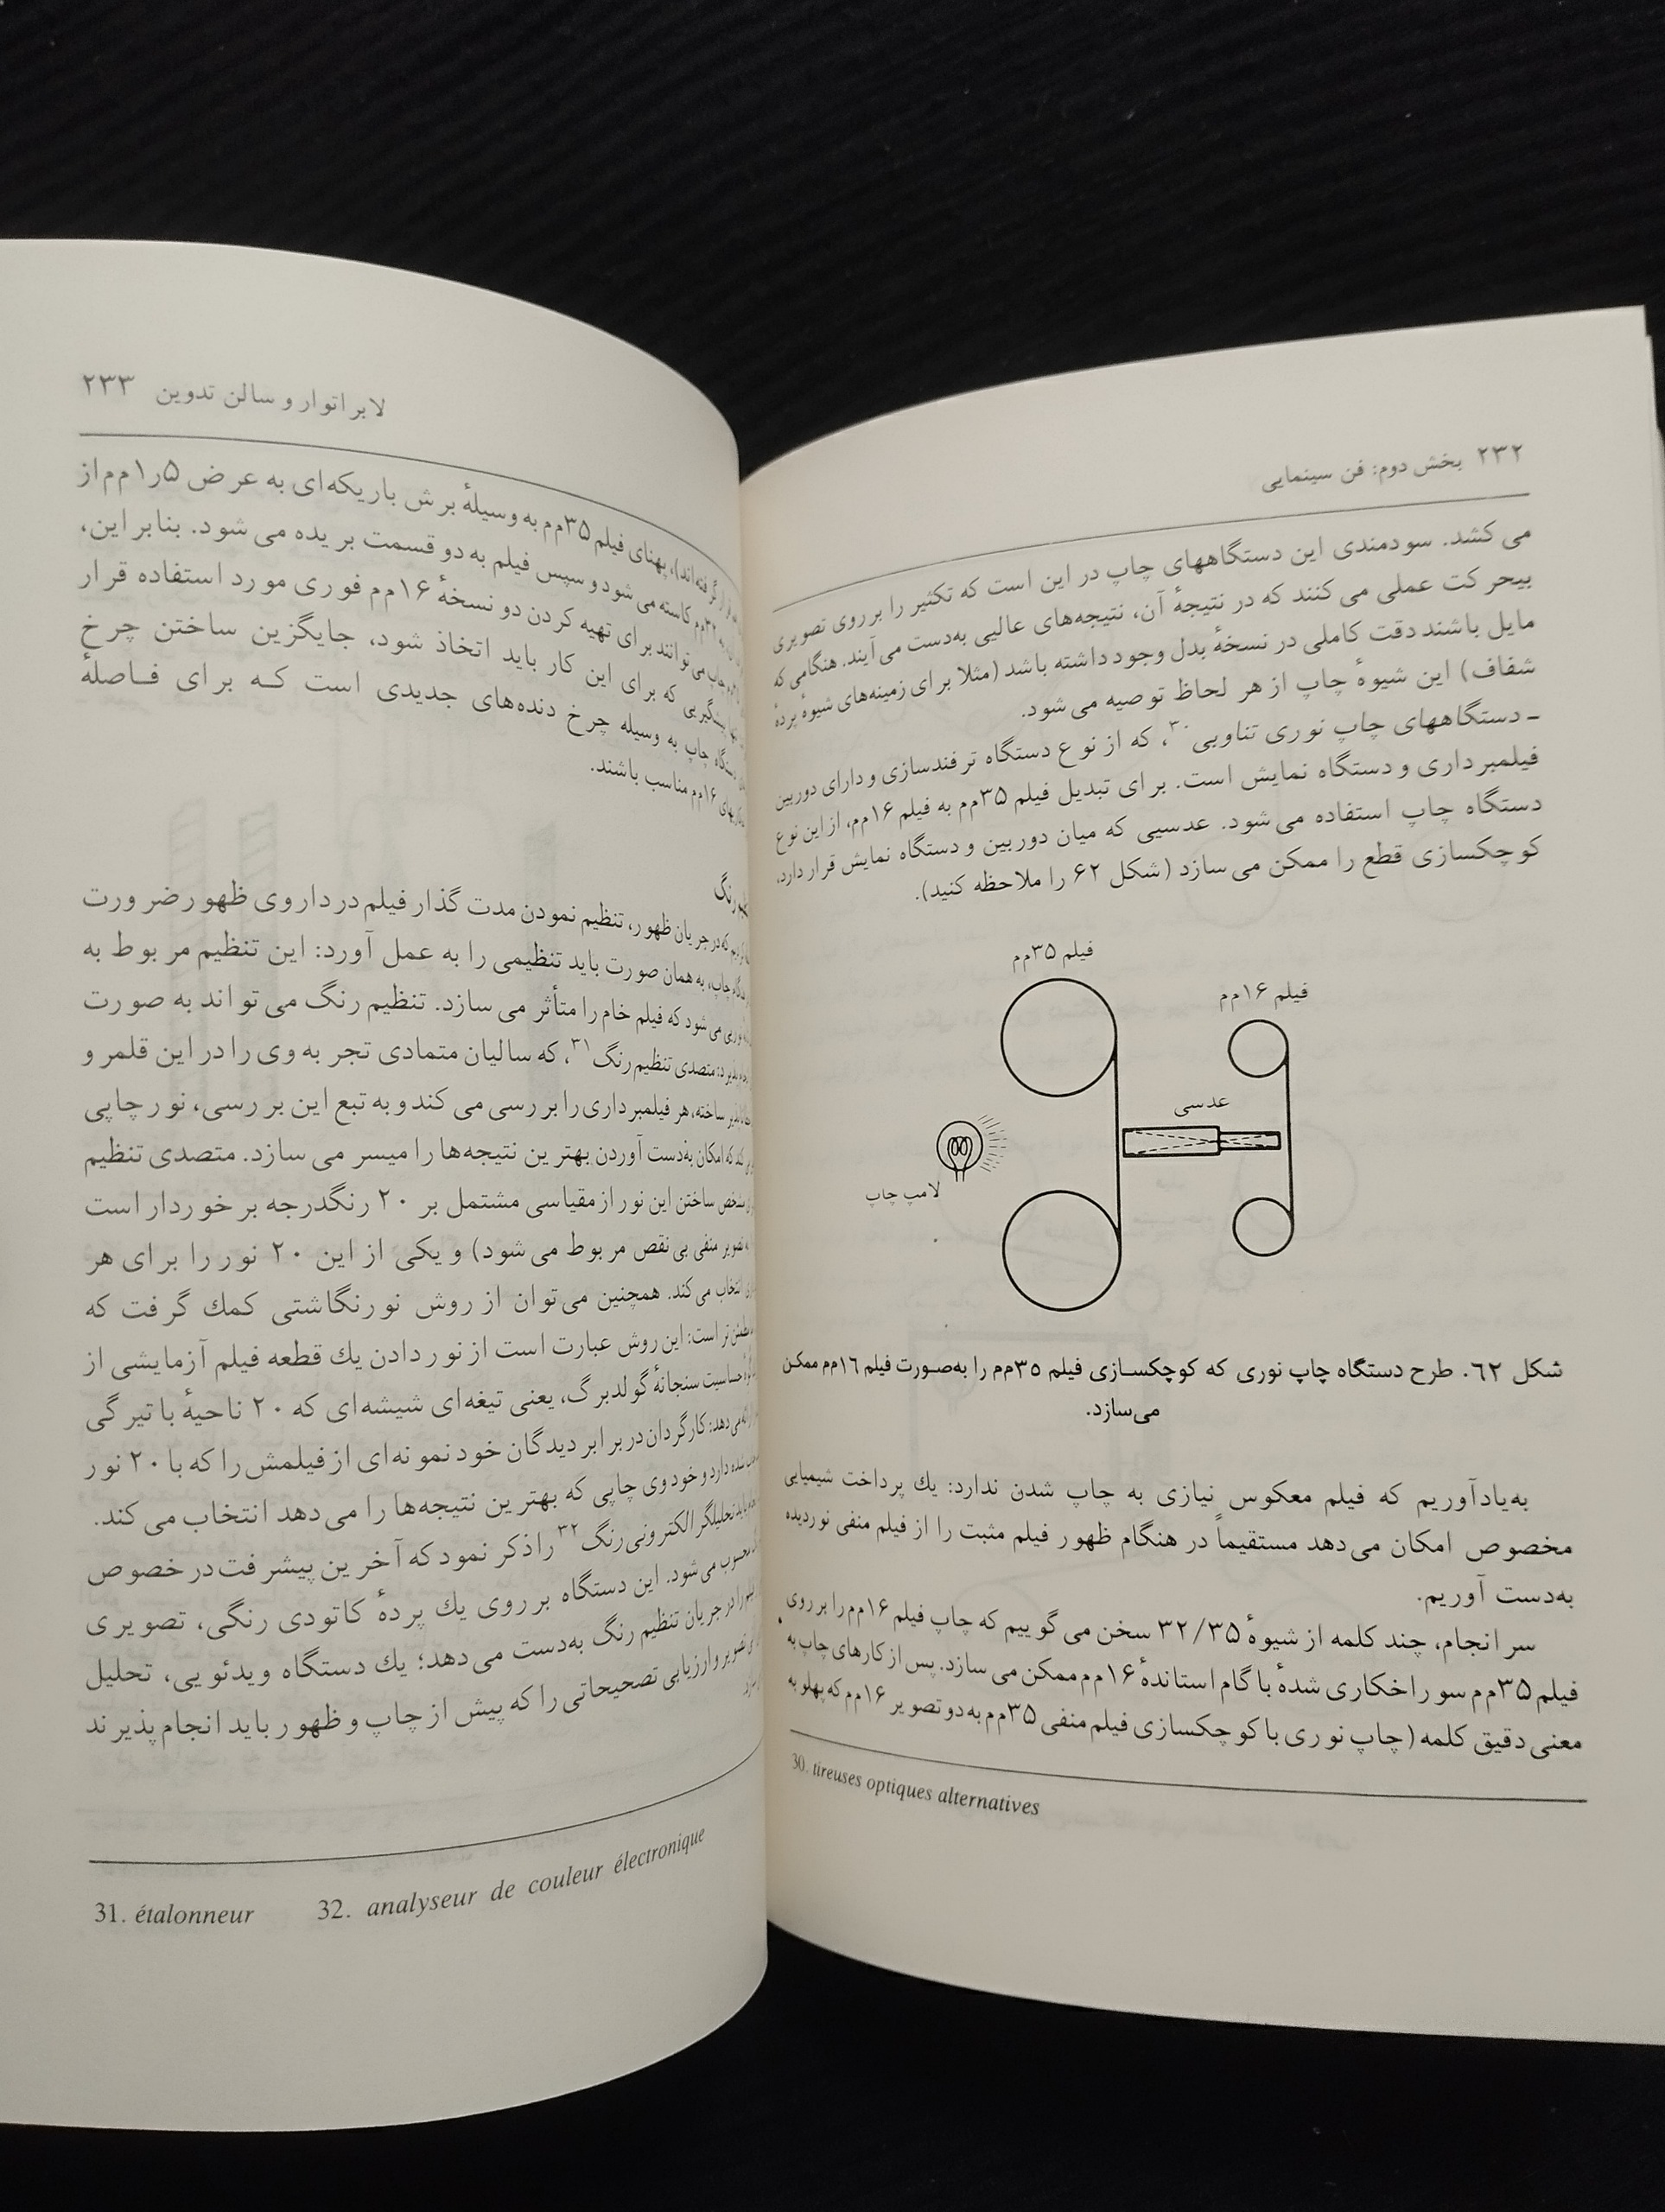 ۲۳۲ بخش دوم: فن سینمایی
می‌کشد. سودمندی این دستگاههای چاپ در این است که تکثیر را بر روی تصویری
بیحرکت عملی می‌کنند که در نتیجهٔ آن، نتیجه‌های عالیی به‌دست می‌آیند. هنگامی که
مایل باشند دقت کاملی در نسخهٔ بدل وجود داشته باشد (مثلا برای زمینه‌های شیوهٔ پردهٔ
شفاف) این شیوهٔ چاپ از هر لحاظ توصیه می‌شود.
ـ دستگاههای چاپ نوری تناوبی۳۰، که از نوع دستگاه ترفندسازی و دارای دوربین
فیلمبرداری و دستگاه نمایش است. برای تبدیل فیلم ۳۵م‌م به فیلم ۱۶م‌م، از این نوع
دستگاه چاپ استفاده می‌شود. عدسیی که میان دوربین و دستگاه نمایش قرار دارد،
کوچکسازی قطع را ممکن می‌سازد (شکل ۶۲ را ملاحظه کنید).
فیلم ۳۵م‌م
فیلم ۱۶م‌م
عدسی
لامپ چاپ
شکل ۶۲. طرح دستگاه چاپ نوری که کوچکسازی فیلم ۳۵م‌م را به‌صورت فیلم ۱۶م‌م ممکن
می‌سازد.
به‌یادآوریم که فیلم معکوس نیازی به چاپ شدن ندارد: یك پرداخت شیمیایی
مخصوص امکان می‌دهد مستقیماً در هنگام ظهور فیلم مثبت را از فیلم منفی نوردیده
به‌دست آوریم.
سرانجام، چند کلمه از شیوهٔ ۳۲/۳۵ سخن می‌گوییم که چاپ فیلم ۱۶م‌م را بر روی
فیلم ۳۵م‌م سوراخکاری شدهٔ با گام استاندهٔ ۱۶م‌م ممکن می‌سازد. پس از کارهای چاپ به
معنی دقیق کلمه (چاپ نوری با کوچکسازی فیلم منفی ۳۵م‌م به دو تصویر ۱۶م‌م که پهلو به
30. tireuses optiques alternatives
لابراتوار و سالن تدوین ۲۳۳
گرفته‌اند)، پهنای فیلم ۳۵م‌م به وسیلهٔ برش باریکه‌ای به عرض ۱٫۵م‌م از
۳۲م‌م کاسته می‌شود و سپس فیلم به دو قسمت بریده می‌شود. بنابراین،
چاپ می‌توانند برای تهیه کردن دو نسخهٔ ۱۶م‌م فوری مورد استفاده قرار
پیشگیریی که برای این کار باید اتخاذ شود، جایگزین ساختن چرخ
دستگاه چاپ به وسیله چرخ دنده‌های جدیدی است که برای فاصلهٔ
۱۶م‌م مناسب باشند.
رنگ
که در جریان ظهور، تنظیم نمودن مدت گذار فیلم در داروی ظهور ضرورت
چاپ، به همان صورت باید تنظیمی را به عمل آورد: این تنظیم مربوط به
می‌شود که فیلم خام را متأثر می‌سازد. تنظیم رنگ می‌تواند به صورت
متصدی تنظیم رنگ۳۱، که سالیان متمادی تجربه وی را در این قلمرو
ساخته، هر فیلمبرداری را بررسی می‌کند و به تبع این بررسی، نور چاپی
که امکان به‌دست آوردن بهترین نتیجه‌ها را میسر می‌سازد. متصدی تنظیم
مشخص ساختن این نور از مقیاسی مشتمل بر ۲۰ رنگدرجه برخوردار است
تصویر منفی بی‌نقص مربوط می‌شود) و یکی از این ۲۰ نور را برای هر
انتخاب می‌کند. همچنین می‌توان از روش نورنگاشتی کمك گرفت که
است: این روش عبارت است از نور دادن یك قطعه فیلم آزمایشی از
حساسیت سنجانهٔ گولدبرگ، یعنی تیغه‌ای شیشه‌ای که ۲۰ ناحیهٔ با تیرگی
می‌دهد: کارگردان در برابر دیدگان خود نمونه‌ای از فیلمش را که با ۲۰ نور
شده دارد و خود وی چاپی که بهترین نتیجه‌ها را می‌دهد انتخاب می‌کند.
باید تحلیلگر الکترونی رنگ۳۲ را ذکر نمود که آخرین پیشرفت در خصوص
محسوب می‌شود. این دستگاه بر روی یك پردهٔ کاتودی رنگی، تصویری
را در جریان تنظیم رنگ به‌دست می‌دهد؛ یك دستگاه ویدئویی، تحلیل
تصویر و ارزیابی تصحیحاتی را که پیش از چاپ و ظهور باید انجام پذیرند
31. étalonneur 32. analyseur de couleur électronique